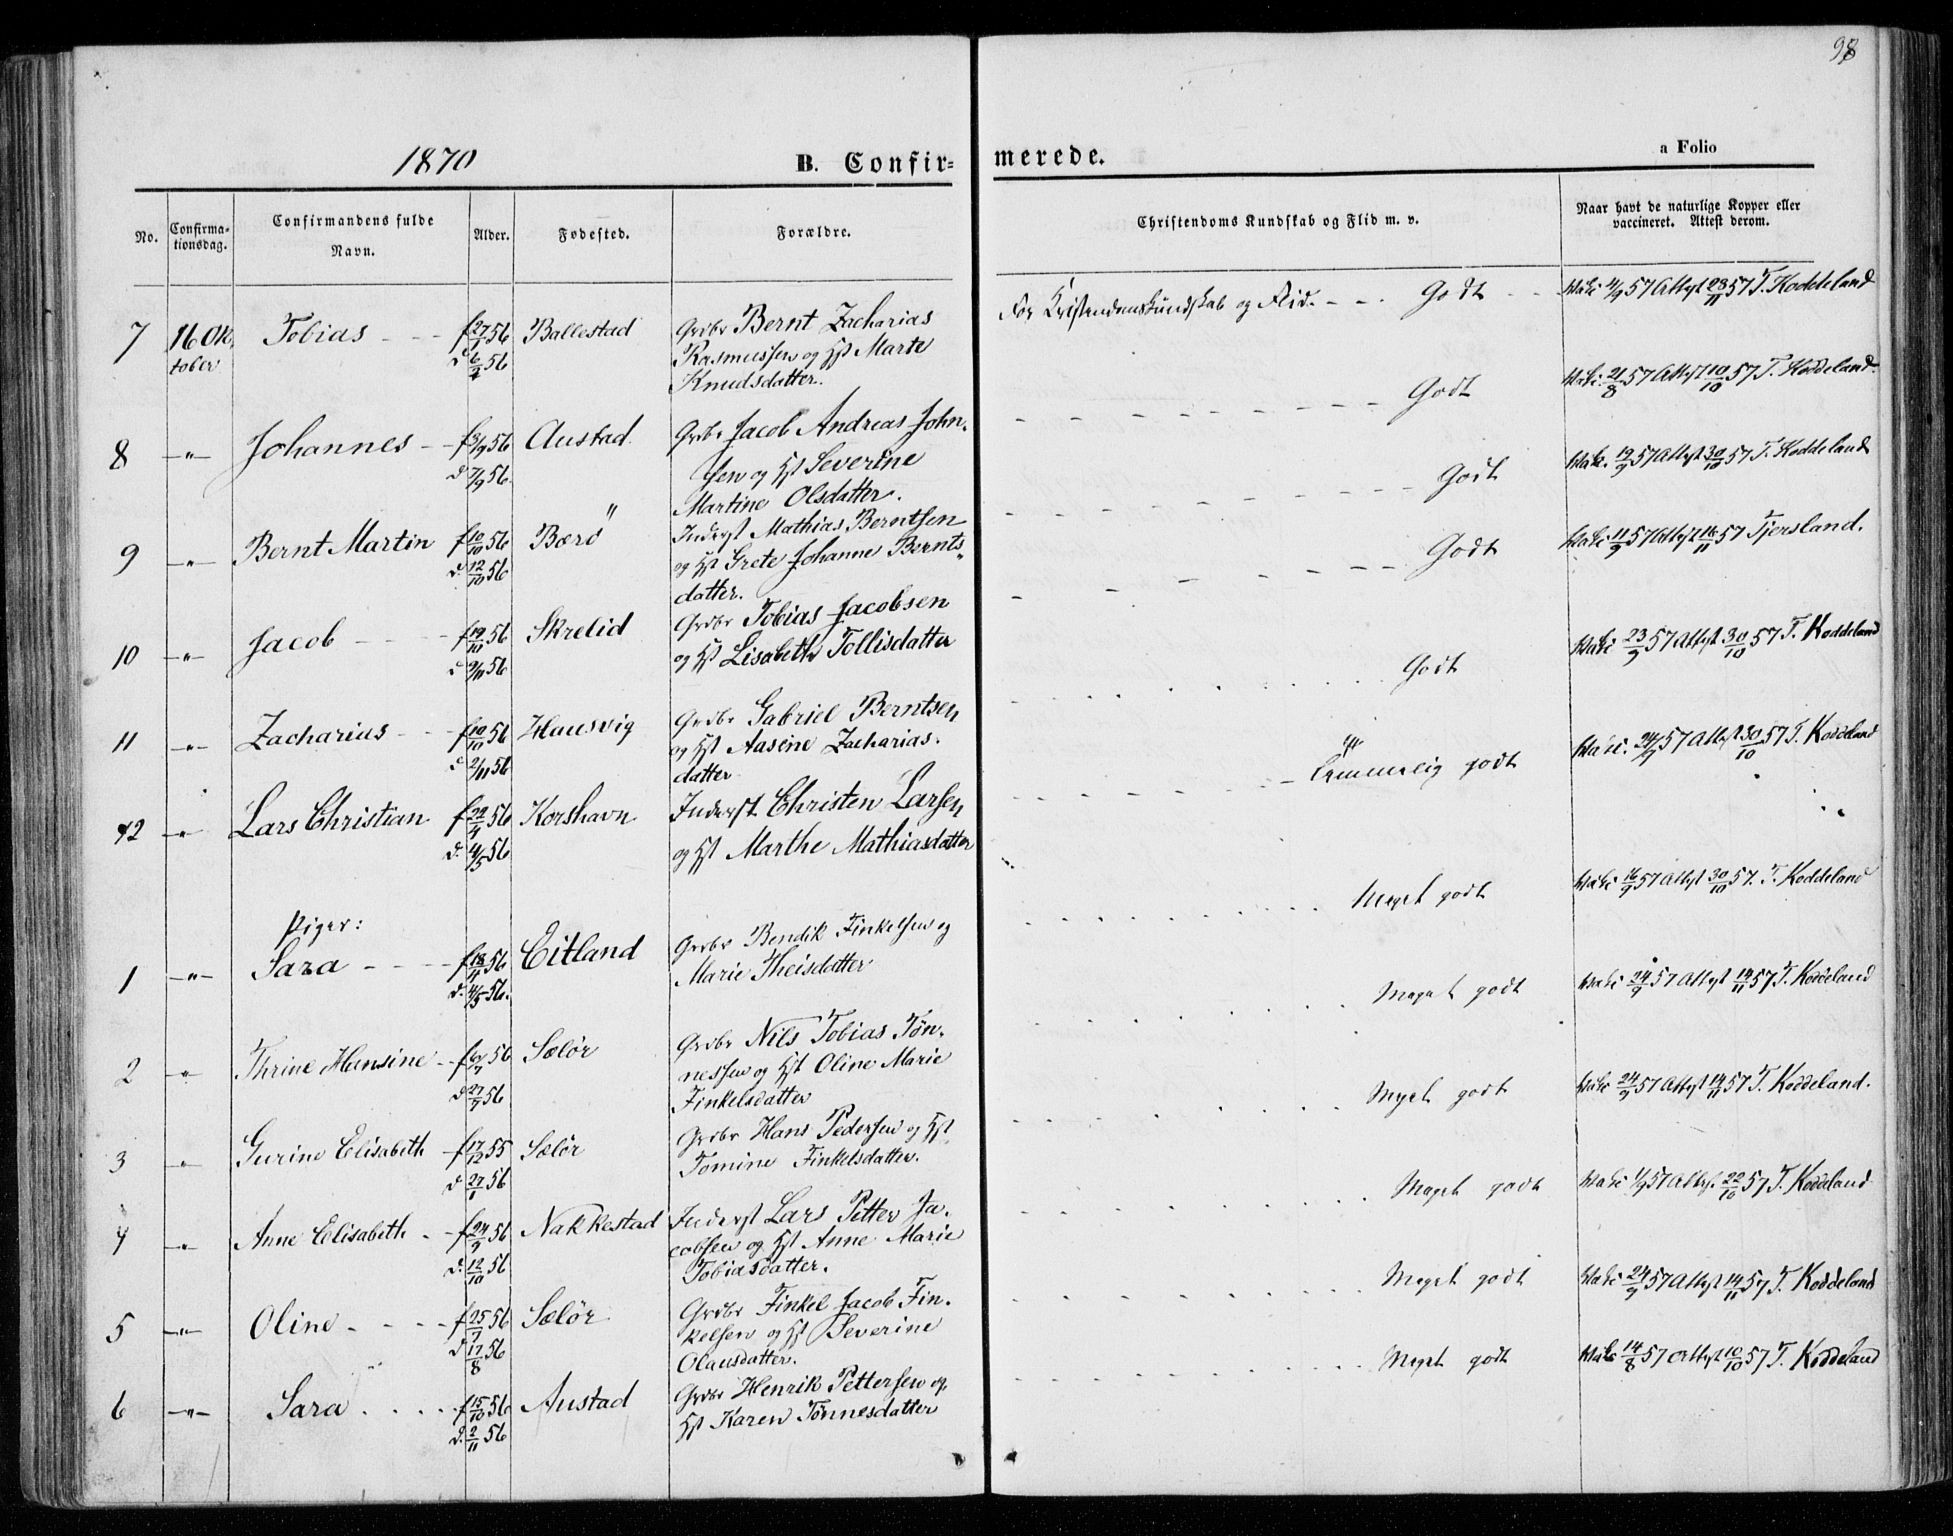 98
1870
B. Confir=
merede.
a Folio
No.
Confirma-
tionsdag.
Confirmandens fulde
Navn.
Alder.
Fødested.
Forældre.
Christendoms Kundskab og Flid m. v.
Naar havt de naturlige Kopper eller
vaccineret. Attest derom.
7 16 Ok- Tobias f 27/1 56 Ballestad Grdbr Bernt Zacharias
tober d 6/4 56 Rasmussen og Hst Marte
Knudsdatter.
For Kristendomskundskab og Flid. Godt 57 Attest 23/11 57 T. Koddeland
8 " Johannes f 3/9 56 Austad Grdbr Jacob Andreas John-
d 7/9 56. sen og Hst Severine
Martine Olsdatter.
Godt 21/8 57 Attest 10/10 57 T. Koddeland
9 " Bernt Martin f 10/10 56 Bærö Inderst Mathias Berntsen
d. 12/10 56 og Hst Grete Johanne Bernts-
datter.
Godt 19/9 57 Attest 30/10 57 T. Koddeland
10 " Jacob f 19/10 56 Skrelid Grdbr Tobias Jacobsen
d 9/11 56 og Hst Lisabeth Tollisdatter
Godt 11/9 57 Attest 16/11 57 Tjersland.
11 " Zacharias f 10/10 56 Hausvig Grdbr Gabriel Berntsen
d 2/11 56 og Hst Aasene Zacharias-
datter
Godt 23/9 57 Attest 30/10 57 T. Koddeland
12 " Lars Christian f 22/4 56 Korshavn Inderst Christen Larsen
d. 4/5 56 og Hst Marthe Mathiasdatter
Temmelig godt 24/9 57 Attest 30/10 57 T. Koddeland
Piger:
1 " Sara f 18/4 56 Eitland Grdbr Bendik Finkelsen og
d. 4/5 56. Marie Theisdatter
Meget godt 16/9 57 Attest 30/10 57. T. Koddeland
2 " Thrine Hansine f 6/7 56 Sælør Grdbr Nils Tobias Tøn-
d 27/7 56 nessen og Hst Oline Marie
Finkelsdatter
Meget godt 24/9 57 Attest 14/11 57 T. Koddeland
3 " Gurine Elisabeth f 17/12 55 Sælør Grdbr Hans Pedersen og Hst
d. 27/1 56 Tomine Finkelsdatter.
Meget godt 24/9 57 Attest 14/11 57 T. Koddeland.
4 " Anne Elisabeth f 24/9 56 Nakkestad Inderst Lars Petter Ja-
d. 12/10 56 cobsen og Hst Anne Marie
Tobiasdatter.
Meget godt 1/9 57 Attest 22/10 57 T. Koddeland
5 " Oline f 25/7 56 Sælør Grdbr Finkel Jacob Fin-
d 17/8 56 kelsen og Hst Severine
Olausdatter.
Meget godt 24/9 57 Attest 14/11 57 T. Koddeland
6 " Sara f 15/10 56 Austad Grdbr Henrik Pettersen og
d. 2/11 56 Hst Karen Tønnesdatter
Meget godt 14/8 57 Attest 10/10 57 T. Koddeland